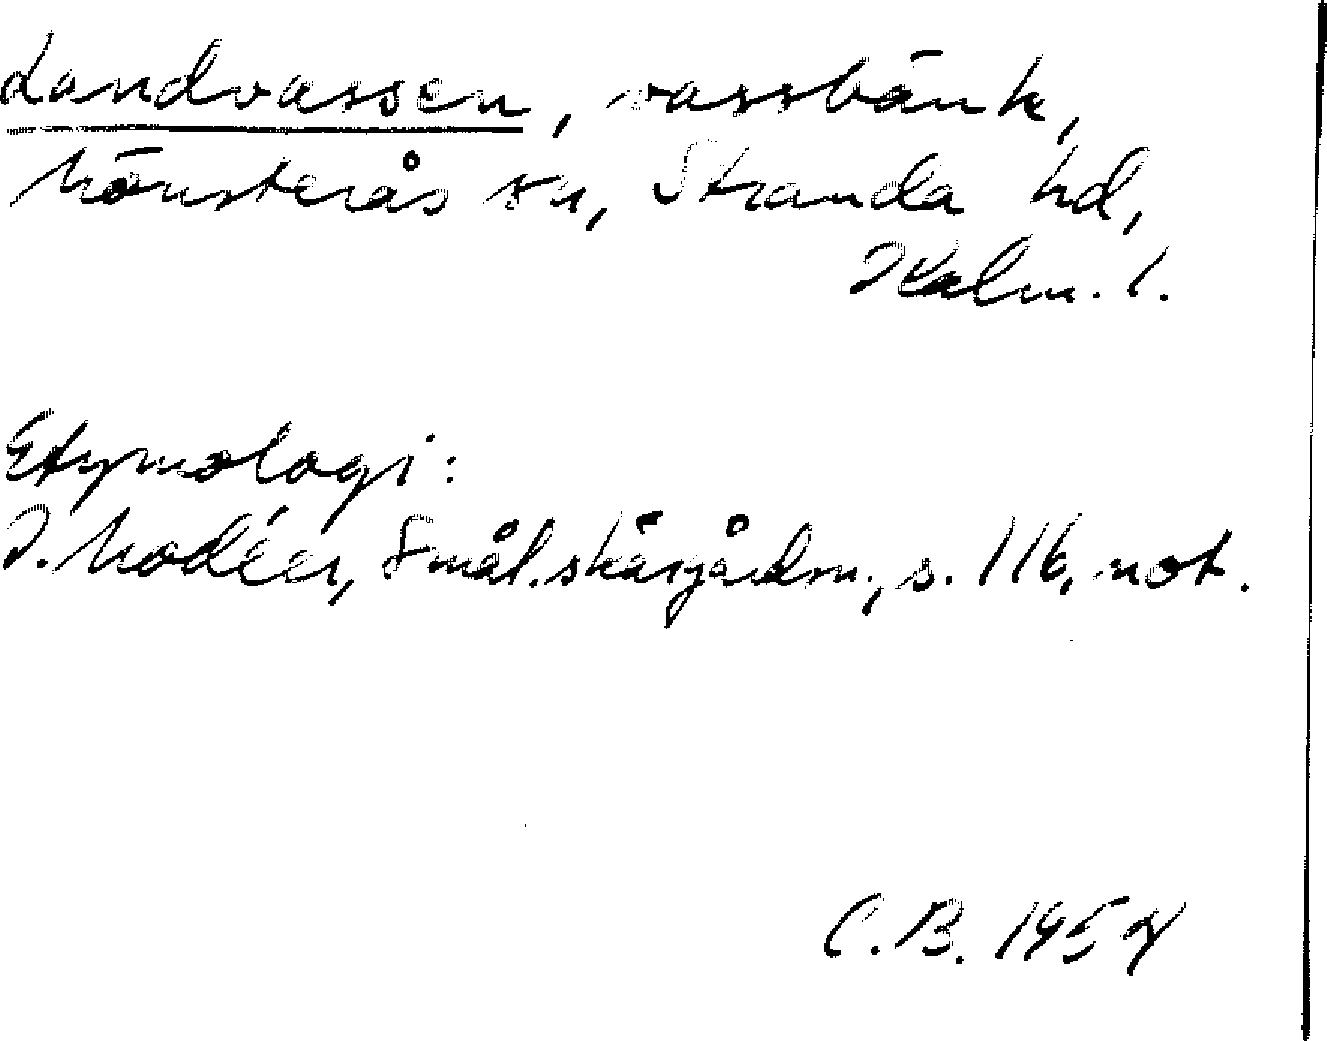 Landvassen, vassbänk,
Mönsterås sn, Stranda hd,
Kalm. l.
Etymologi:
I. Modéer, Smål. skärgårdsn., s. 116, not.
C. B. 1957